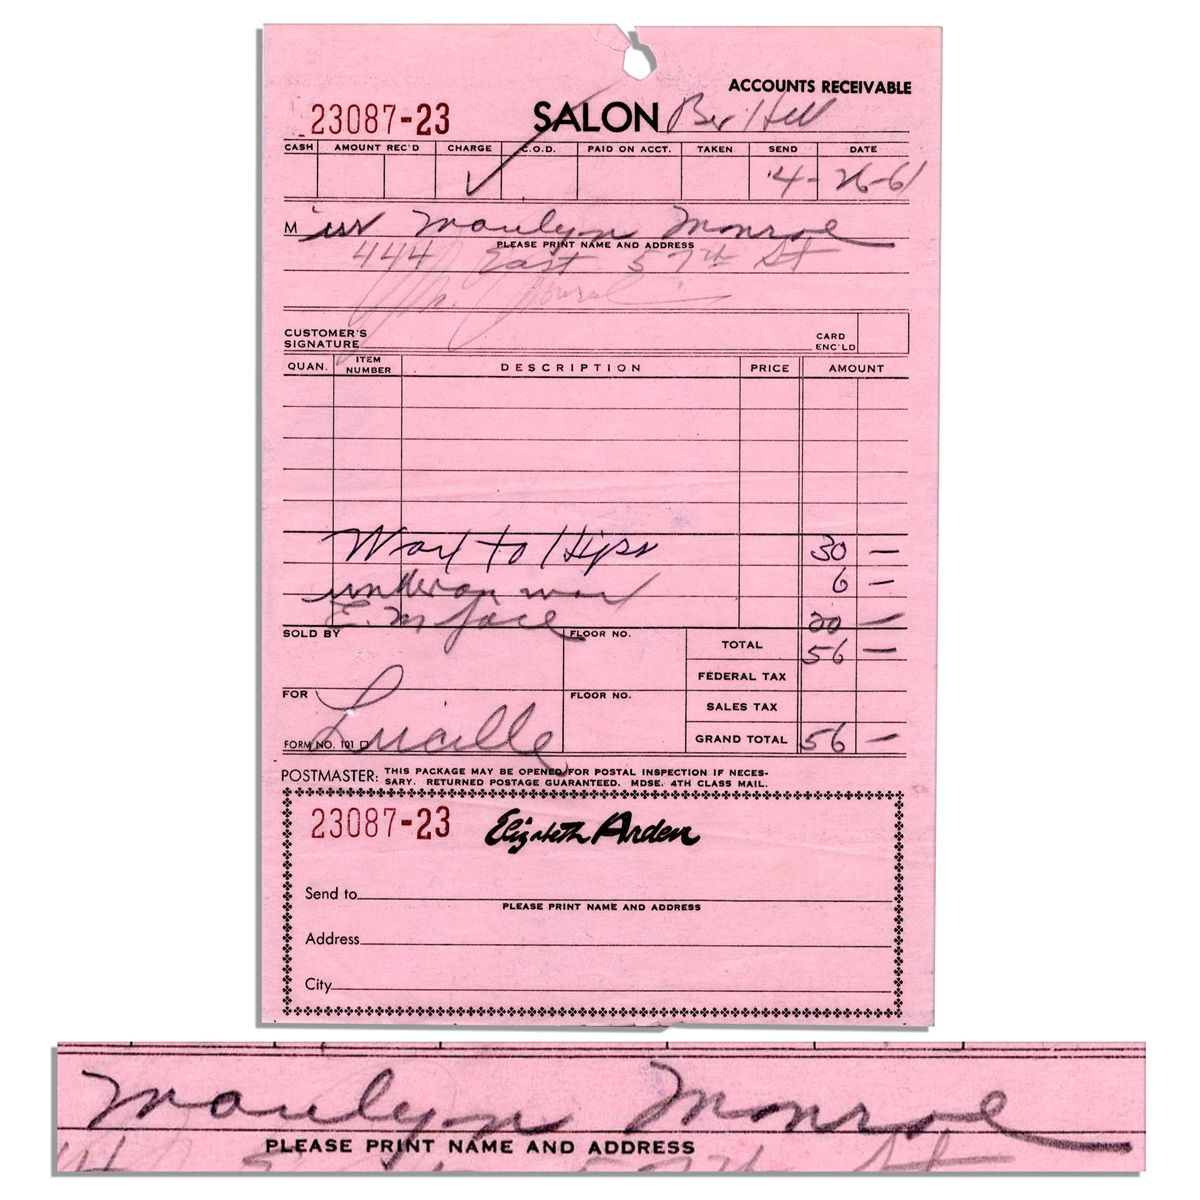 ACCOUNTS RECEIVABLE
23087-23 SALON Bev Hill
CASH AMOUNT REC'D CHARGE C.O.D. PAID ON ACCT. TAKEN SEND DATE
✓ 4-26-61
Miss Marilyn Monroe
PLEASE PRINT NAME AND ADDRESS
444 East 57th St
CUSTOMER'S SIGNATURE CARD ENC'LD
QUAN. ITEM NUMBER DESCRIPTION PRICE AMOUNT
Wax to Hips 30 —
underarm wax 6 —
E. M face 20 —
SOLD BY FLOOR NO. TOTAL 56 —
FEDERAL TAX
FOR Lucille FLOOR NO. SALES TAX
FORM NO. 101 GRAND TOTAL 56 —
POSTMASTER: THIS PACKAGE MAY BE OPENED FOR POSTAL INSPECTION IF NECES-
SARY. RETURNED POSTAGE GUARANTEED. MDSE. 4TH CLASS MAIL.
23087-23 Elizabeth Arden
Send to
PLEASE PRINT NAME AND ADDRESS
Address
City
Marilyn Monroe
PLEASE PRINT NAME AND ADDRESS
57th St